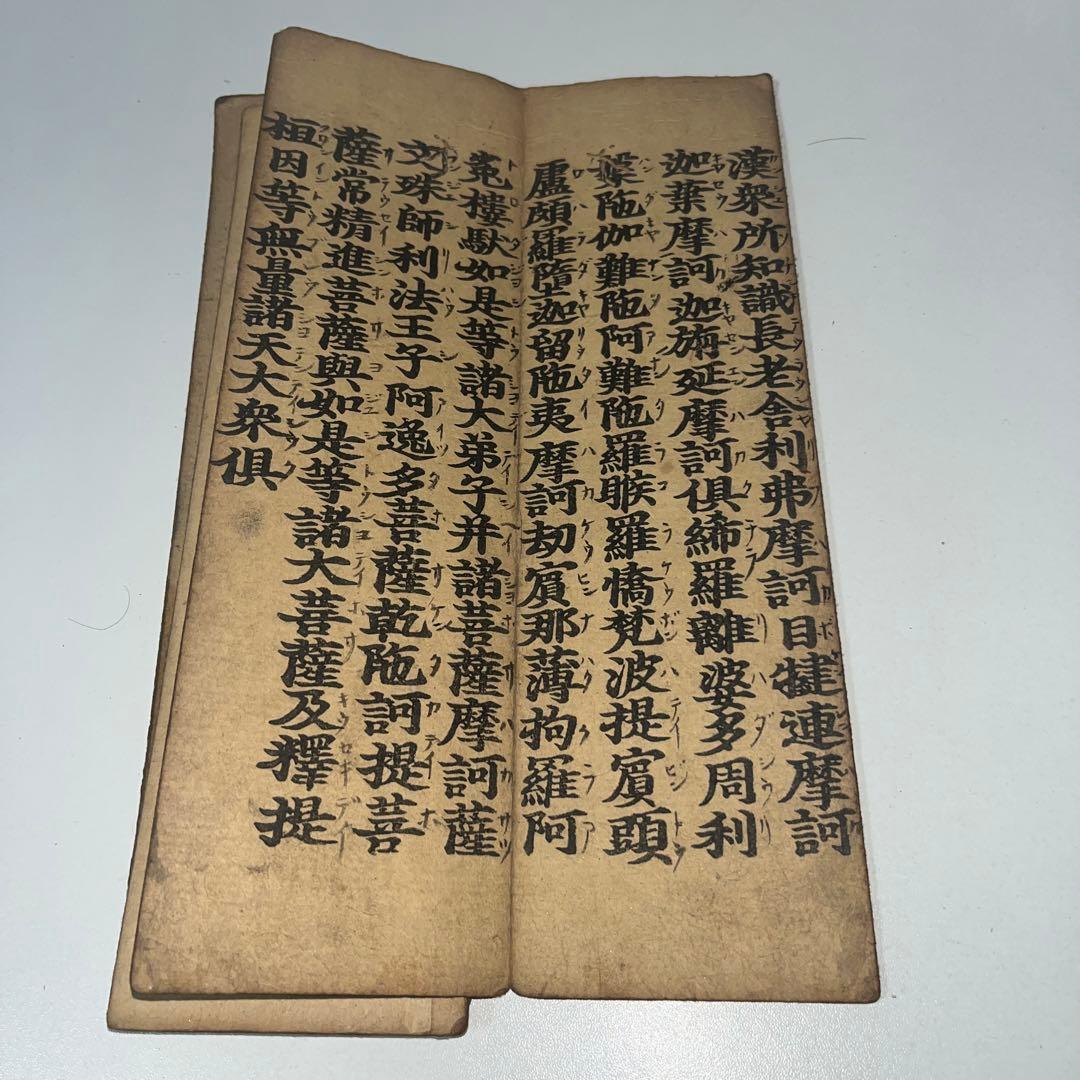 漢衆所知識長老舍利弗摩訶目犍連摩訶
迦葉摩訶迦旃延摩訶俱絺羅離婆多周利
槃陁伽難陁阿難陁羅睺羅憍梵波提賓頭
盧頗羅墮迦留陁夷摩訶劫賓那薄拘羅阿
㝹樓馱如是等諸大弟子并諸菩薩摩訶薩
文殊師利法王子阿逸多菩薩乾陁訶提菩
薩常精進菩薩與如是等諸大菩薩及釋提
桓因等無量諸天大衆俱